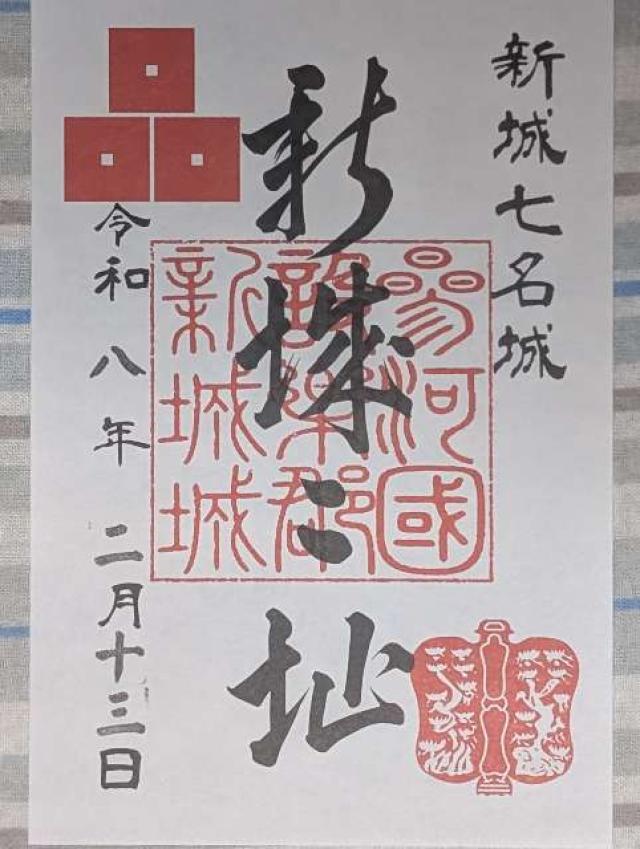 新城七名城
新城〻址
參河國
設樂郡
新城城
令和八年二月十三日